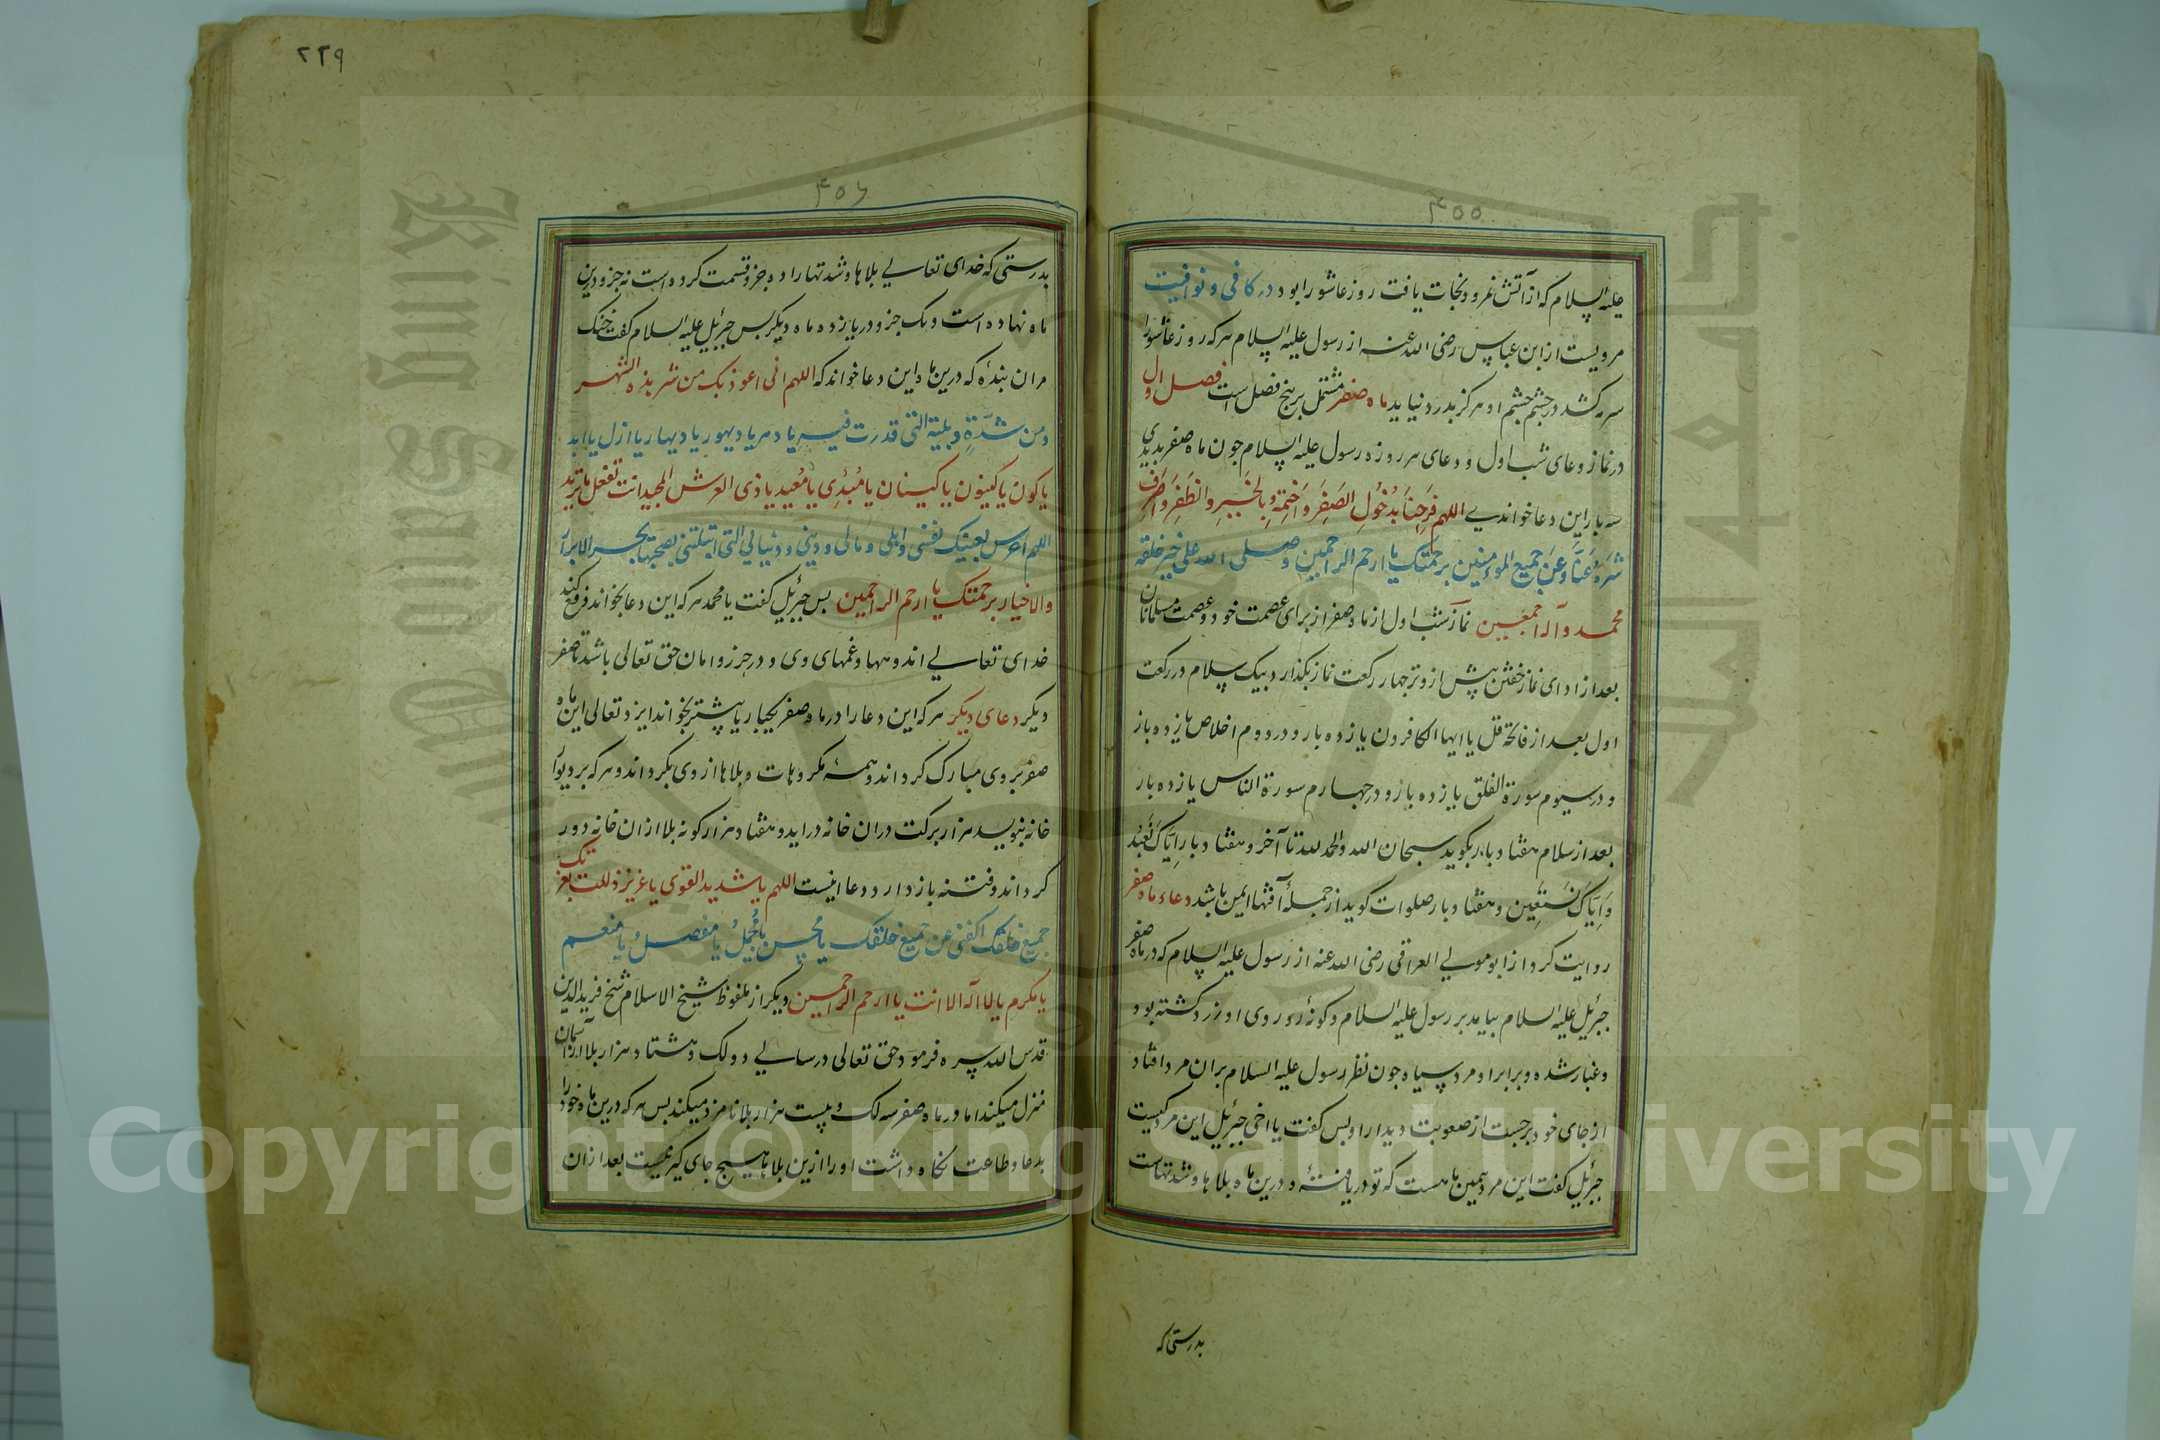 ۴۵۵
علیه السلام که از آتش نمرود نجات یافت روز عاشورا بود در کافی و نوافیت
مرویست از ابن عباس رضی الله عنه از رسول علیه السلام هر که روز عاشورا
سرمه کشد در چشم چشم او هرگز بدرد نیاید ماه صفر مشتمل بر پنج فصل است فصل اول
در نماز و دعای شب اول و دعای هر روزه رسول علیه السلام چون ماه صفر بدیدی
سه بار این دعا خواندی اللهم فرحنا بدخول الصفر واختمه بالخیر والظفر واصرف
شره عنا وعن جمیع المومنین برحمتک یا ارحم الراحمین وصلی الله علی خیر خلقه
محمد وآله اجمعین نماز شب اول از ماه صفر از برای عصمت خود و عصمت مسلمانان
بعد از ادای نماز خفتن پیش از وتر چهار رکعت نماز بگذارد بیک سلام در رکعت
اول بعد از فاتحه قل یا ایها الکافرون یازده بار و در دوم اخلاص یازده بار
و در سیوم سورة الفلق یازده بار و در چهارم سورة الناس یازده بار
بعد از سلام هفتاد بار بگوید سبحان الله والحمد لله تا آخر و هفتاد بار ایاک نعبد
وایاک نستعین و هفتاد بار صلوات گوید از جمله آفتها ایمن باشد دعاء ماه صفر
روایت کرد از ابو موسی العراقی رضی الله عنه از رسول علیه السلام که در ماه صفر
جبرئیل علیه السلام بیامد بر رسول علیه السلام و گونه روی او زرد گشته بود
و غبار شده و برابر او مرد سیاه چون نظر رسول علیه السلام بران مرد افتاد
از جای خود برجست از صعوبت دیدار او پس گفت یا اخی جبرئیل این مرد کیست
جبرئیل گفت این مرد همین ماهست که تو دریافته و درین ماه بلاها و شدتهاست
بدرستی که
۲۲۹
۴۵۶
بدرستی که خدای تعالی بلاها و شدتها را ده جزو قسمت کرده است نه جزو درین
ماه نهاده است و یک جزو در یازده ماه دیگر پس جبرئیل علیه السلام گفت خنک
مران بنده که درین ماه این دعا خواند که اللهم انی اعوذ بک من شر هذه الشهر
ومن شدة وبلیة التی قدرت فیه یا دهر یا دیهور یا دیهار یا ازل یا ابد
یا کون یا کینون یا کینان یا مبدئ یا معید یا ذی العرش المجید انت تفعل ما ترید
اللهم احرس بعینک نفسی واهلی ومالی ودینی ودنیائی التی ابتلتنی بصحبتها بحر الابرار
والاخیار برحمتک یا ارحم الراحمین پس جبرئیل گفت یا محمد هر که این دعا بخواند فرع کند
خدای تعالی اندوهها و غمهای وی و در حرز و امان حق تعالی باشد تا صفر
دیگر دعای دیگر هر که این دعا را در ماه صفر یکبار یا بیشتر بخواند ایزد تعالی این ماه
صفر بر وی مبارک گرداند و همه مکروهات و بلاها از وی بگرداند و هر که بر دیوار
خانه بنویسد هزار برکت دران خانه دراید و هفتاد هزار گونه بلا ازان خانه دور
گرداند و فتنه باز دارد و دعا اینست اللهم یا شدید القوی یا عزیز ذللت بعزتک
جمیع خلقک اکفنی عن جمیع خلقک یا محسن یا مجمل یا مفضل یا منعم
یا مکرم یا لا اله الا انت یا ارحم الراحمین دیگر از ملفوظ شیخ الاسلام شیخ فرید الدین
قدس الله سره فرمود حق تعالی در سالی دو لک و هشتاد هزار بلا از آسمان
منزل میکند اما در ماه صفر سه لک و بیست هزار بلا نامزد میکند پس هر که درین ماه خود را
بدعا و طاعت نگاه داشت او را ازین بلاها هیچ جای گیر نیست بعد ازان
Copyright © King Saud University